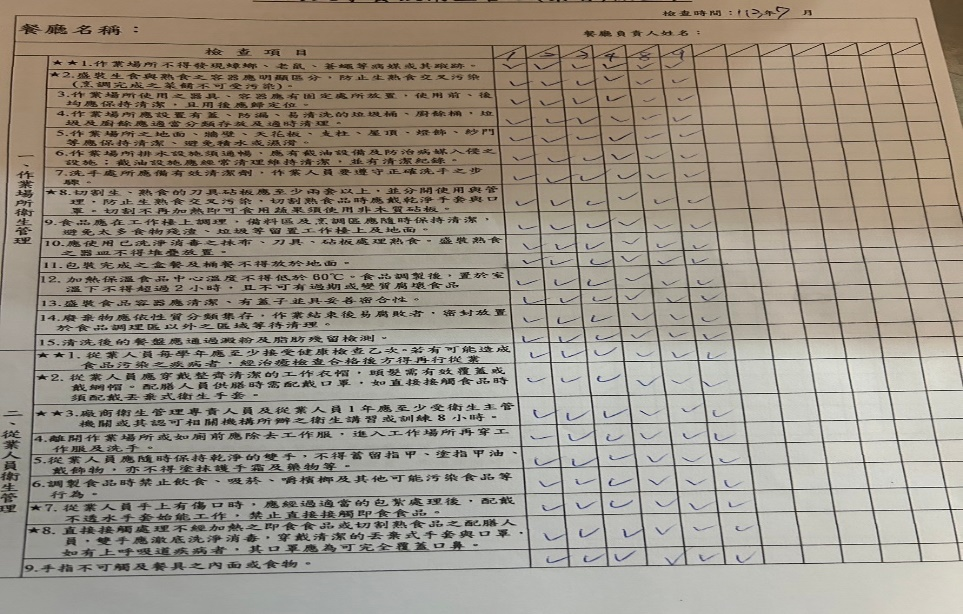 檢查時間：113年7月
餐廳名稱：
餐廳負責人姓名：
檢查項目 1 2 3 4 8 9
一、作業場所衛生管理
★★1.作業場所不得發現蟑螂、老鼠、蒼蠅等病媒或其蹤跡。
★2.盛裝生食與熟食之容器應明顯區分，防止生熟食交叉污染
(烹調完成之菜餚不可受污染)。
3.作業場所使用之器具、容器應有固定處所放置，使用前、後
均應保持清潔，且用後應歸定位。
4.作業場所應設置有蓋、防漏、易清洗的垃圾桶、廚餘桶，垃
圾及廚餘應適當分類存放及適時清理。
5.作業場所之地面、牆壁、天花板、支柱、屋頂、燈飾、紗門
等應保持清潔、避免積水或濕滑。
6.作業場所排水設施須通暢，應有截油設備及防治病媒入侵之
設施；截油設施應經常清理維持清潔，並有清潔紀錄。
7.洗手處所應備有效清潔劑，作業人員要遵守正確洗手之步
驟。
★8.切割生、熟食的刀具砧板應至少兩套以上，並分開使用與管
理，防止生熟食交叉污染，切割熟食時應戴乾淨手套與口
罩。切割不再加熱即可食用蔬果須使用非木質砧板。
9.食品應在工作檯上調理，備料區及烹調區應隨時保持清潔，
避免太多食物殘渣、垃圾等留置工作檯上及地面。
10.應使用已洗淨消毒之抹布、刀具、砧板處理熟食。盛裝熟食
之器皿不得堆疊放置。
11.包裝完成之盒餐及桶餐不得放於地面。
12.加熱保溫食品中心溫度不得低於60℃。食品調製後，置於室
溫下不得超過2小時，且不可有過期或變質腐壞食品
13.盛裝食品容器應清潔、有蓋子並具妥善密合性。
14.廢棄物應依性質分類集存，作業結束後易腐敗者，密封放置
於食品調理區以外之區域等待清理。
15.清洗後的餐盤應通過澱粉及脂肪殘留檢測。
二、從業人員衛生管理
★★1.從業人員每學年應至少接受健康檢查乙次。若有可能造成
食品污染之疾病者，經治癒檢查合格後方得再行從業
★2.從業人員應穿戴整齊清潔的工作衣帽，頭髮需有效覆蓋或
戴網帽。配膳人員供膳時需配戴口罩，如直接接觸食品時
須配戴丟棄式衛生手套。
★★3.廠商衛生管理專責人員及從業人員1年應至少受衛生主管
機關或其認可相關機構所辦之衛生講習或訓練8小時。
4.離開作業場所或如廁前應除去工作服，進入工作場所再穿工
作服及洗手。
5.從業人員應隨時保持乾淨的雙手，不得蓄留指甲、塗指甲油、
戴飾物，亦不得塗抹護手霜及藥物等。
6.調製食品時禁止飲食、吸菸、嚼檳榔及其他可能污染食品等
行為。
★7.從業人員手上有傷口時，應經過適當的包紮處理後，配戴
不透水手套始能工作，禁止直接接觸即食食品。
★8.直接接觸處理不經加熱之即食食品或切割熟食品之配膳人
員，雙手應徹底洗淨消毒，穿戴清潔的丟棄式手套與口罩，
如有上呼吸道疾病者，其口罩應為可完全覆蓋口鼻。
9.手指不可觸及餐具之內面或食物。